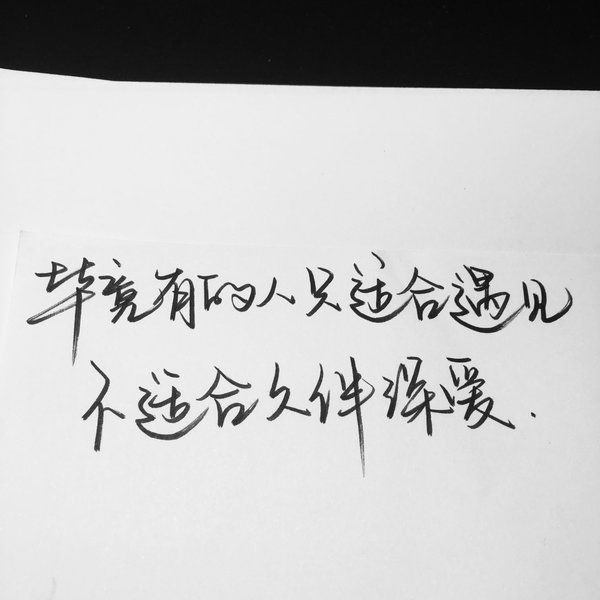 毕竟有的人只适合遇见
不适合久伴深爱.